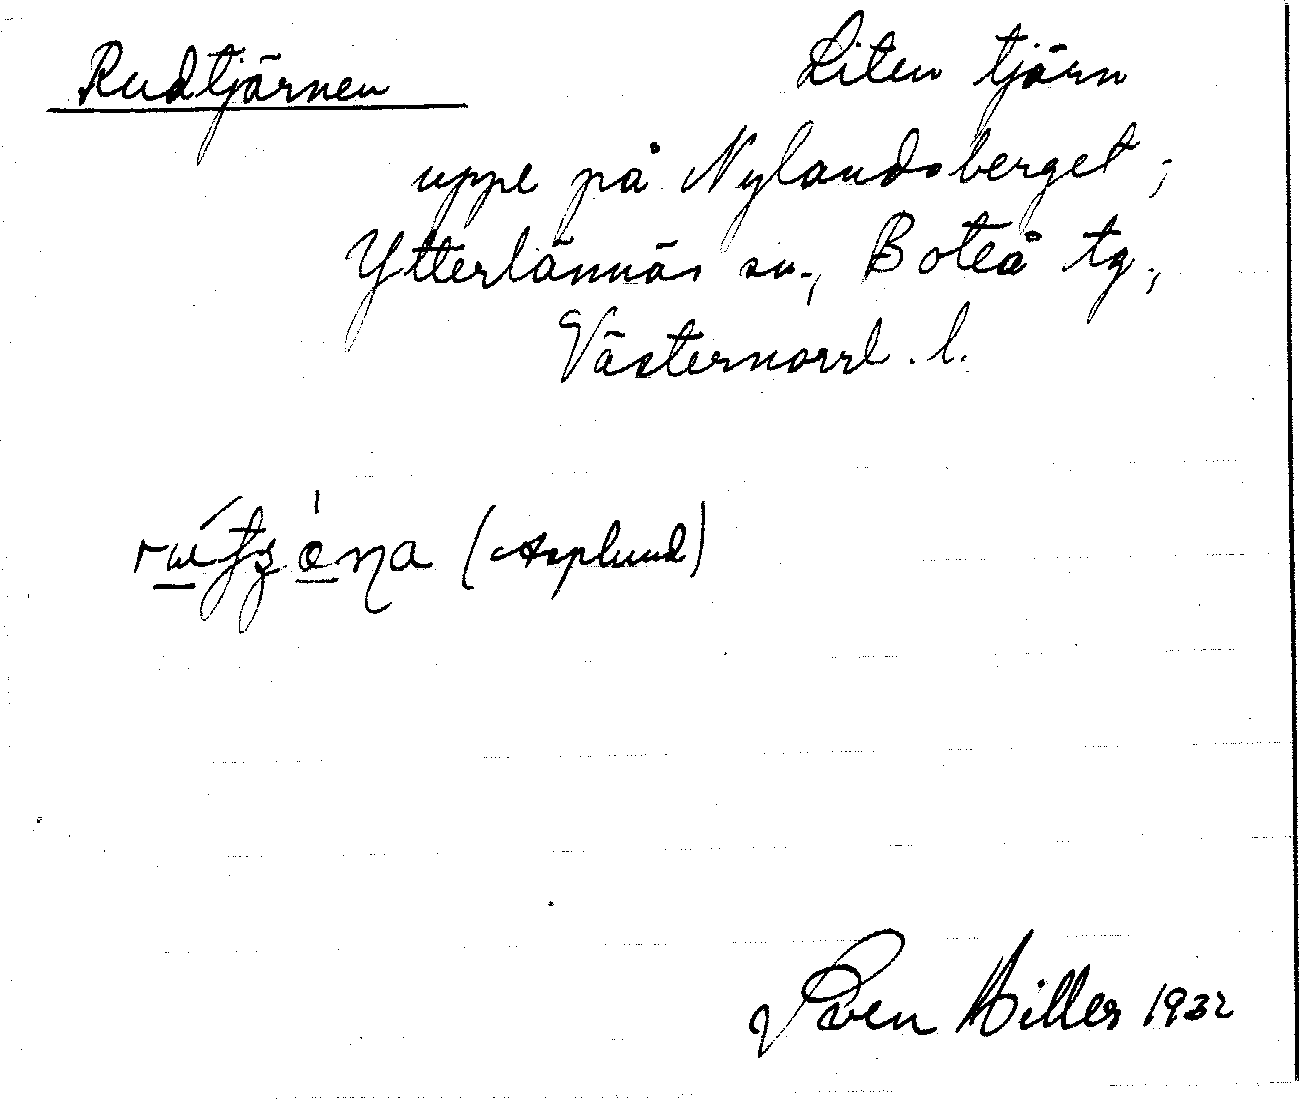 Rudtjärnen Liten tjärn
uppe på Nylandsberget;
Ytterlännäs sn., Boteå tg,
Västernorrl. l.
(Asplund)
Sven Hiller 1932